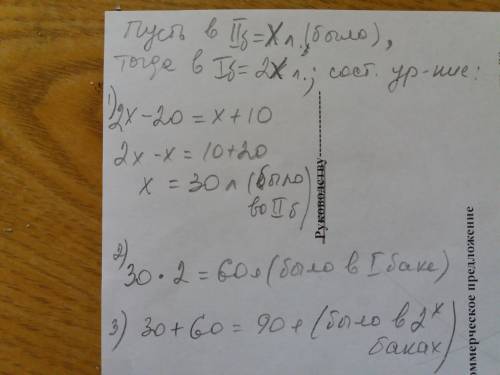 Пусть в IIб = x л. (было),
тогда в Iб = 2x л.; сост. ур-ние:
1) 2x - 20 = x + 10
2x - x = 10 + 20
x = 30 л (было
во II б)
2) 30 · 2 = 60 л (было в I баке)
3) 30 + 60 = 90 л (было в 2х
баках)
Руководству
оммерческое предложение